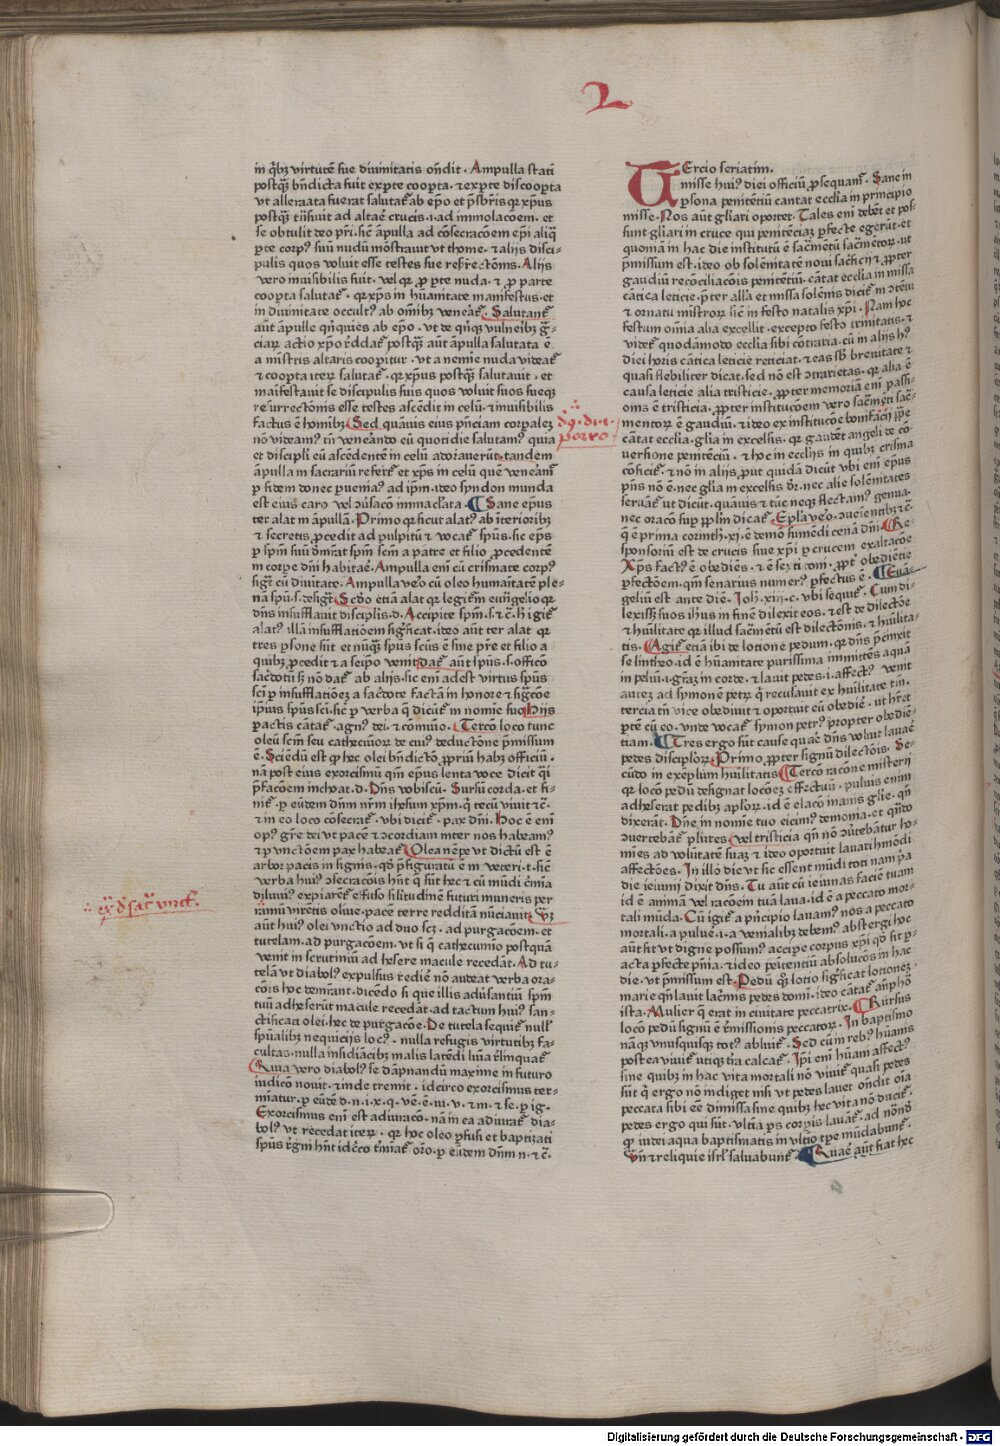 2
in q̄bꝫ virtutē sue diuinitatis oñdit . Ampulla stati
postq̄ꝫ bñdicta fuit ex pte coopta . ⁊ ex pte discoopta
ut allenata fuerat salutat᷑ ab ep̄o et p̄sbr̄is
postq̄ꝫ trāsiuit ad altaē crucis .i. ad immolacōem . et
se obtulit deo pr̄i . sic ā̄pulla ad cōsecracōem ep̄i aliq̄
pte corpꝰ suū nudū mōstrauit vt thome . ⁊ alijs disci-
pulis quos voluit esse testes sue resr̄rectōnis . Alijs
vero inuisibilis fuit . vel qꝛ ꝓ pte nuda . ⁊ ꝓ parte
coopta salutat᷑ . qꝛ xp̄s in hūanitate manifestus . et
in diuinitate occultꝰ ab om̄ibꝫ venerat᷑ . Salutant᷑
aūt āpulle qn̄quies ab ep̄o . vt de qn̄qꝫ vulneribꝫ g̈-
ciaꝝ actio xp̄o r̄ddat᷑ postq̄ꝫ aūt āpulla salutata ē
a mīstris altaris coopitur . vt a nemīe nuda videat᷑
⁊ coopta iteꝝ salutat᷑ . qꝛ xp̄us postq̄ꝫ salutauit . et
maifestauit se discipulis suis quos voluit suos sueqꝫ
resurrectōnis esse testes ascēdit in celū . ⁊ inuisibilis
factus ē hoībꝫ . Sed quāuis eius p̄nciam corpalez
nō videamꝰ tn̄ venerādo eū quotidie salutamꝰ quia
et discipli eū ascēdentē in celū adorauerūt . tandem
āpulla in sacrariū refert᷑ et xp̄s in celū quē veneram᷑
ꝑ fidem donec ꝑueniaꝰ ad ip̄m . ideo syndon munda
est eiꝰ caro vel ꝯuersacō immaclata . Sane ep̄us
ter alat in āpullā . Primo qꝛ sicut alatꝰ ab īterioribꝫ
⁊ secretis ꝓcedit ad pulpitū ⁊ vocat᷑ spūs . sic ep̄s
ꝑ spm̄ suū dem̄rat spm̄ scm̄ a patre et filio ꝓcedentē
in corpe dn̄i habitaē . Ampulla em̄ cū crismate corpꝰ
sig̅t cū diuitate . Ampulla veo cū oleo humaītatē ple-
nā spū .s. desig̅t . Scdo etiā alat qꝛ legit᷑ in euāgelio qꝛ
dn̄s insufflauit disciplis . d . Accipite spm̄ .s. ⁊ c̄.
alatꝰ illā insufflatiōem sig̅ficat . ideo aūt ter alat qꝛ
tres ꝑsone sūt et nūq̄ꝫ spūs scūs ē sine pr̄e et filio a
quibꝫ ꝓcedit ⁊ a seipo venit . dat᷑ aūt spūs .s. offico
sacdotii ꝫ nō dat᷑ ab alijs . sic em̄ adest virtus spūs
sci ꝑ insufflatiōez a sacdote factā in honore ⁊ sig̅ficōe
ip̄iꝰ spūs sci . sic ꝑ verba q̄ dicūt᷑ in nomīe suo . Hijs
pactis cātat᷑ . agnꝰ dei . ⁊ cōmūio . Tercō loco tunc
oleū scm̄ seu cathecūioꝝ de cuiꝰ deductōne p̄missum
ē . Sciēdū est ꝙ hec olei bn̄dictō ꝓpriū habꝫ officiū .
nā post eius exorcismū qm̄ ep̄us lenta voce dicit q̄i
p̄facōem inchoat . d . Dn̄s vobiscū . Sursū corda . et fi-
nit᷑ . ꝑ eūdem dn̄m nr̄m ihesum xp̄m . q̄ tecū viuit ⁊ c̄.
⁊ in eo loco cōsecrat᷑ . vbi dicit᷑ . pax dn̄i . Hoc ē em̄
opꝰ gr̄e dei vt pacē ⁊ ꝯcordiam inter nos habeamꝰ
⁊ ꝑ vnctōem pax habeat᷑ . Olea nēpe vt dictū est ē
arbor pacis in signis . qd̄ p̄figuratū ē in veteri .t. sic
verba huiꝰ ꝯsecracōis hn̄t q̄ sūt hec ⁊ cū mūdi crīmīa
diluuiꝰ expiaret᷑ effuso silitudinē futuri muneris per
ramū vir̄etis oliue . pacē terre reddītā nūciauit .
aūt huiꝰ olei vnctio ad duo scꝫ . ad purgacōem . et
tutelam . ad purgacōem . vt si q̄ cathecumīo postquā
venit in scrutiniū adhesere macule recedāt . Ad tu-
telā vt diabolꝰ expulsus r̄ediē nō audeat verba ora-
cōis hoc dem̄rant . dicēdo si que illis aduersantiū spm̄
tuū adheserūt macule recedāt . ad tactum huiꝰ san-
ctificati olei . hec de purgacōe . De tutela sequit᷑ nullꝰ
spūalibꝫ nequicijs locꝰ . nulla refugis virtutibꝫ fa-
cultas . nulla insidiācibꝫ malis latēdi lūa r̄linquat᷑
Quia vero diabolꝰ se dāpnandū maxime in futuro
iudicō nouit . ⁊ inde tremit . idcirco exorcismus ter-
miatur . ꝑ eūdē . d . n . i . x . q . vē . ē . iu . v . ⁊ m . ⁊ se . ꝑ ig .
Exorcismus em̄ est adiuracō . nā in ea adiurat᷑ dia-
bolꝰ vt recedat iteꝝ . qꝛ hoc oleo ꝑfusi et baptizati
spūs r̄gm̄ hn̄t idcō t̄miat᷑ oro . ꝑ eūdem dn̄m n . ⁊ c̄.
ex̄ d̄ sac᷑ vnct᷑ .
d̄ 9 . di . c .
porro
TErcio seriatim .
misse huiꝰ diei officiū ꝓsequam᷑ . Sane in
ꝑsona penitētiū cantat ecclia in principio
misse . Nos aūt gl̄iari oportet . Tales em̄ debēt et pos-
sunt gl̄iari in cruce qui penitēciaꝫ ꝑfecte egerūt . et
quoniā in hac die institutū ē sacr̄mētū sacr̄mētoꝝ . ut
p̄missum est . ideo ob solenitatē noui sacrificii ⁊ ꝓpter
gaudiū recōciliacōis penitētiū . cātat ecclia in missa
cātica leticie . p̄ter all̄a et missa solenis dicit᷑
⁊ ornatu mīstroꝝ sic in festo natalis xp̄i . Nam hoc
festum omīa alia excellit . excepto festo trinitatis . ⁊
videt᷑ quodāmodo ecclia sibi cōtraria . cū in alijs hꝰ
diei horis cātica leticie reticiat . ⁊ eas sb̄ breuitate ⁊
quasi flebiliter dicat . sed nō est ꝯtrarietas . qꝛ alia ē
causa leticie alia tristicie . ꝓpter memoriā em̄ passi-
onis ē tristicia . ꝓpter institucōem vero sacr̄mēti sacr̄-
mentoꝝ ē gaudiū . ⁊ ideo ex institucōe bonifacii pp̄e
cātat ecclia . gl̄ia in excelsis . qꝛ gaudēt angeli de cō-
uersione penitēciū . ⁊ hoc in ecclijs in quibꝫ crisma
cōficit᷑ . ⁊ nō in alijs put quidā dicūt vbi em̄ ep̄us
p̄ns nō ē . nec gl̄ia in excelsis dr̄ . nec alie solēnitates
seruāt᷑ ut dicūt . quāuis ⁊ tūc neqꝫ flectamꝰ genua .
nec oracō suꝑ pp̄lm̄ dicat᷑ . Ep̄la v̄o . ꝯueientibꝫ ⁊ c̄.
q̄ ē prima corinth . xj . ē demō sumēdi cenā dn̄i . Re-
sponsoriū est de crucis siue xp̄i ꝑ crucem exaltacōe
Xp̄s factꝰ ē obediēs . ⁊ ē sexti toni . ꝓpt᷑ obediētie
ꝑfectōem . qm̄ senarius numerꝰ ꝑfectus ē . Euā-
geliū est ante diē . Joh . xiii . c . vbi sequit᷑ . Cum di-
lexissꝫ suos ih̄us in finē dilexit eos . ⁊ est de dilectōe
⁊ hūilitate qꝛ illud sacr̄mētū est dilectōnis . ⁊ hūilita-
tis . Agit᷑ etiā ibi de lotione pedum . qꝛ dn̄s p̄cinxit
se lintheo . id ē hūanitate purissima immittēs aquā
in peluī .i. grāꝫ in corde . ⁊ lauit pedes .i. affectꝰ . venit
autez ad symonē petꝝ q̄ recusauit ex hūilitate tn̄ .
tercia tn̄ vice obediuit ⁊ oportuit eū obediē . ut hr̄et
ptē cū eo . vnde vocat᷑ symon petrꝰ ꝓpter obediē-
tiam . Tres ergo sūt cause quaē dn̄s voluit lauaē
pedes discipuloꝝ . Primo ꝓpter signū dilectōis . Se-
cūdo in exeplum hūilitatis . Tercō racōne misterii
qꝛ locō pedū designat locōez effectuū . puluis enim
adheserat pedibꝫ aploꝝ . id ē elacō inanis glie . qn̄
dixerāt . Dn̄e in nomīe tuo eicimꝰ demonia . et qn̄do
ꝯuertebāt᷑ plures . vel tristicia qn̄ nō ꝯuertebātur ho-
mīes ad volūtatē suaꝫ ⁊ ideo oportuit lauari hmōdi
affectōes . In illo die vt sic essent mūdi toti nam p̄a
die ieiunij dixit dn̄s . Tu aūt cū ieiunas faciē tuam
id ē animā vel racōem tuā laua . id ē a peccato mor-
tali mūda . Cū igit᷑ a p̄ncipio lauamꝰ nos a peccato
mortali . a puluē .i. a venialibꝫ debemꝰ abstergi hoc
aūt sit vt digne possumꝰ accipe corpus xp̄i qd̄ fit ꝑ-
acta ꝑfecte pn̄ia . ⁊ ideo penitentiū absolucōs in hac
die . vt p̄missum est . Pedū q̄ꝫ lotio sig̅ficat lotionez
marie qn̄ lauit lac̄mis pedes domi . ideo cātat᷑ an̄pho
ista . Mulier q̄ erat in ciuitate peccatrix . Rursus
locō pedū signū ē r̄missionis peccatoꝝ . In baptismo
nāqꝫ vnusquisqꝫ totꝰ abluit᷑ . Sed cū in rebꝰ hūanis
post ea viuit᷑ utiqꝫ tr̄a calcat᷑ . Ip̄i em̄ hūani affectꝰ
sine quibꝫ in hac vita mortali nō viuit᷑ quasi pedes
sūt q̄ ergo nō indiget nisi vt pedes lauet oñdit oīa
peccata sibi eē dimissa sine quibꝫ hec vita nō ducit᷑ .
pedes ergo qui sūt . vltīa ps corpis lauāt᷑ . ad notād̄
ꝙ iudei aqua baptismatis in vltīo tꝑe mūdabunt᷑ .
Vn̄ ⁊ reliquie isrl̄ saluabunt᷑ . Quaē aūt fiat hec
Digitalisierung gefördert durch die Deutsche Forschungsgemeinschaft - DFG